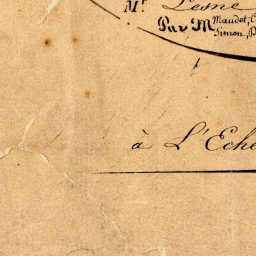 Mr. Lesne
Par M Maudet, C
Simon, P
à L'Eche